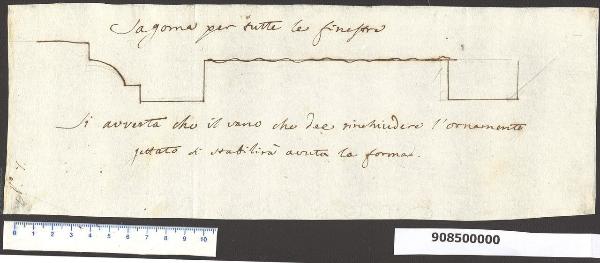 Sagoma per tutte le finestre
Si averta che il vano che dee rinchiudere l'ornamento
gettato si stabilirà avuta la forma.
0 1 2 3 4 5 6 7 8 9 10
908500000